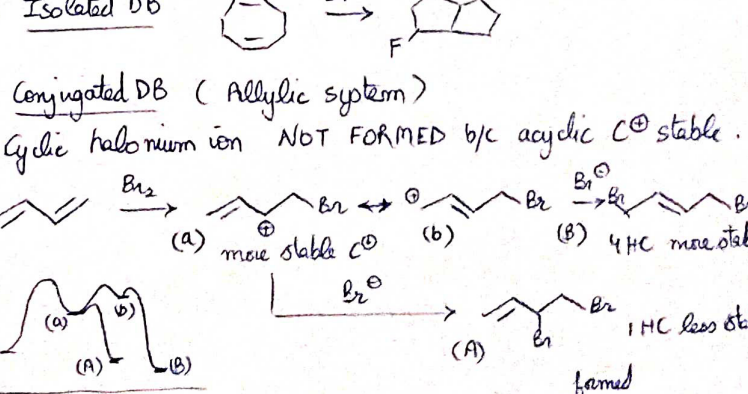 Isolated DB
F
Conjugated DB ( Allylic system )
Cyclic halonium ion NOT FORMED b/c acyclic C⊕ stable .
Br2
Br ↔ ⊕
Br
Br⊖
Br
(a) more stable C⊕
(b)
(B) 4HC more
Br⊖
Br
Br
(A)
1HC less
formed
(a)
(b)
(A)
(B)